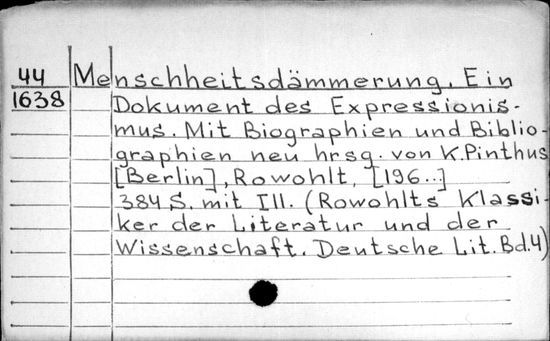 44 Menschheitsdämmerung. Ein
1638 Dokument des Expressionis-
mus. Mit Biographien und Biblio-
graphien neu hrsg. von K.Pinthus
[Berlin], Rowohlt, [196..]
384 S. mit Ill. (Rowohlts Klassi-
ker der Literatur und der
Wissenschaft. Deutsche Lit. Bd.4)